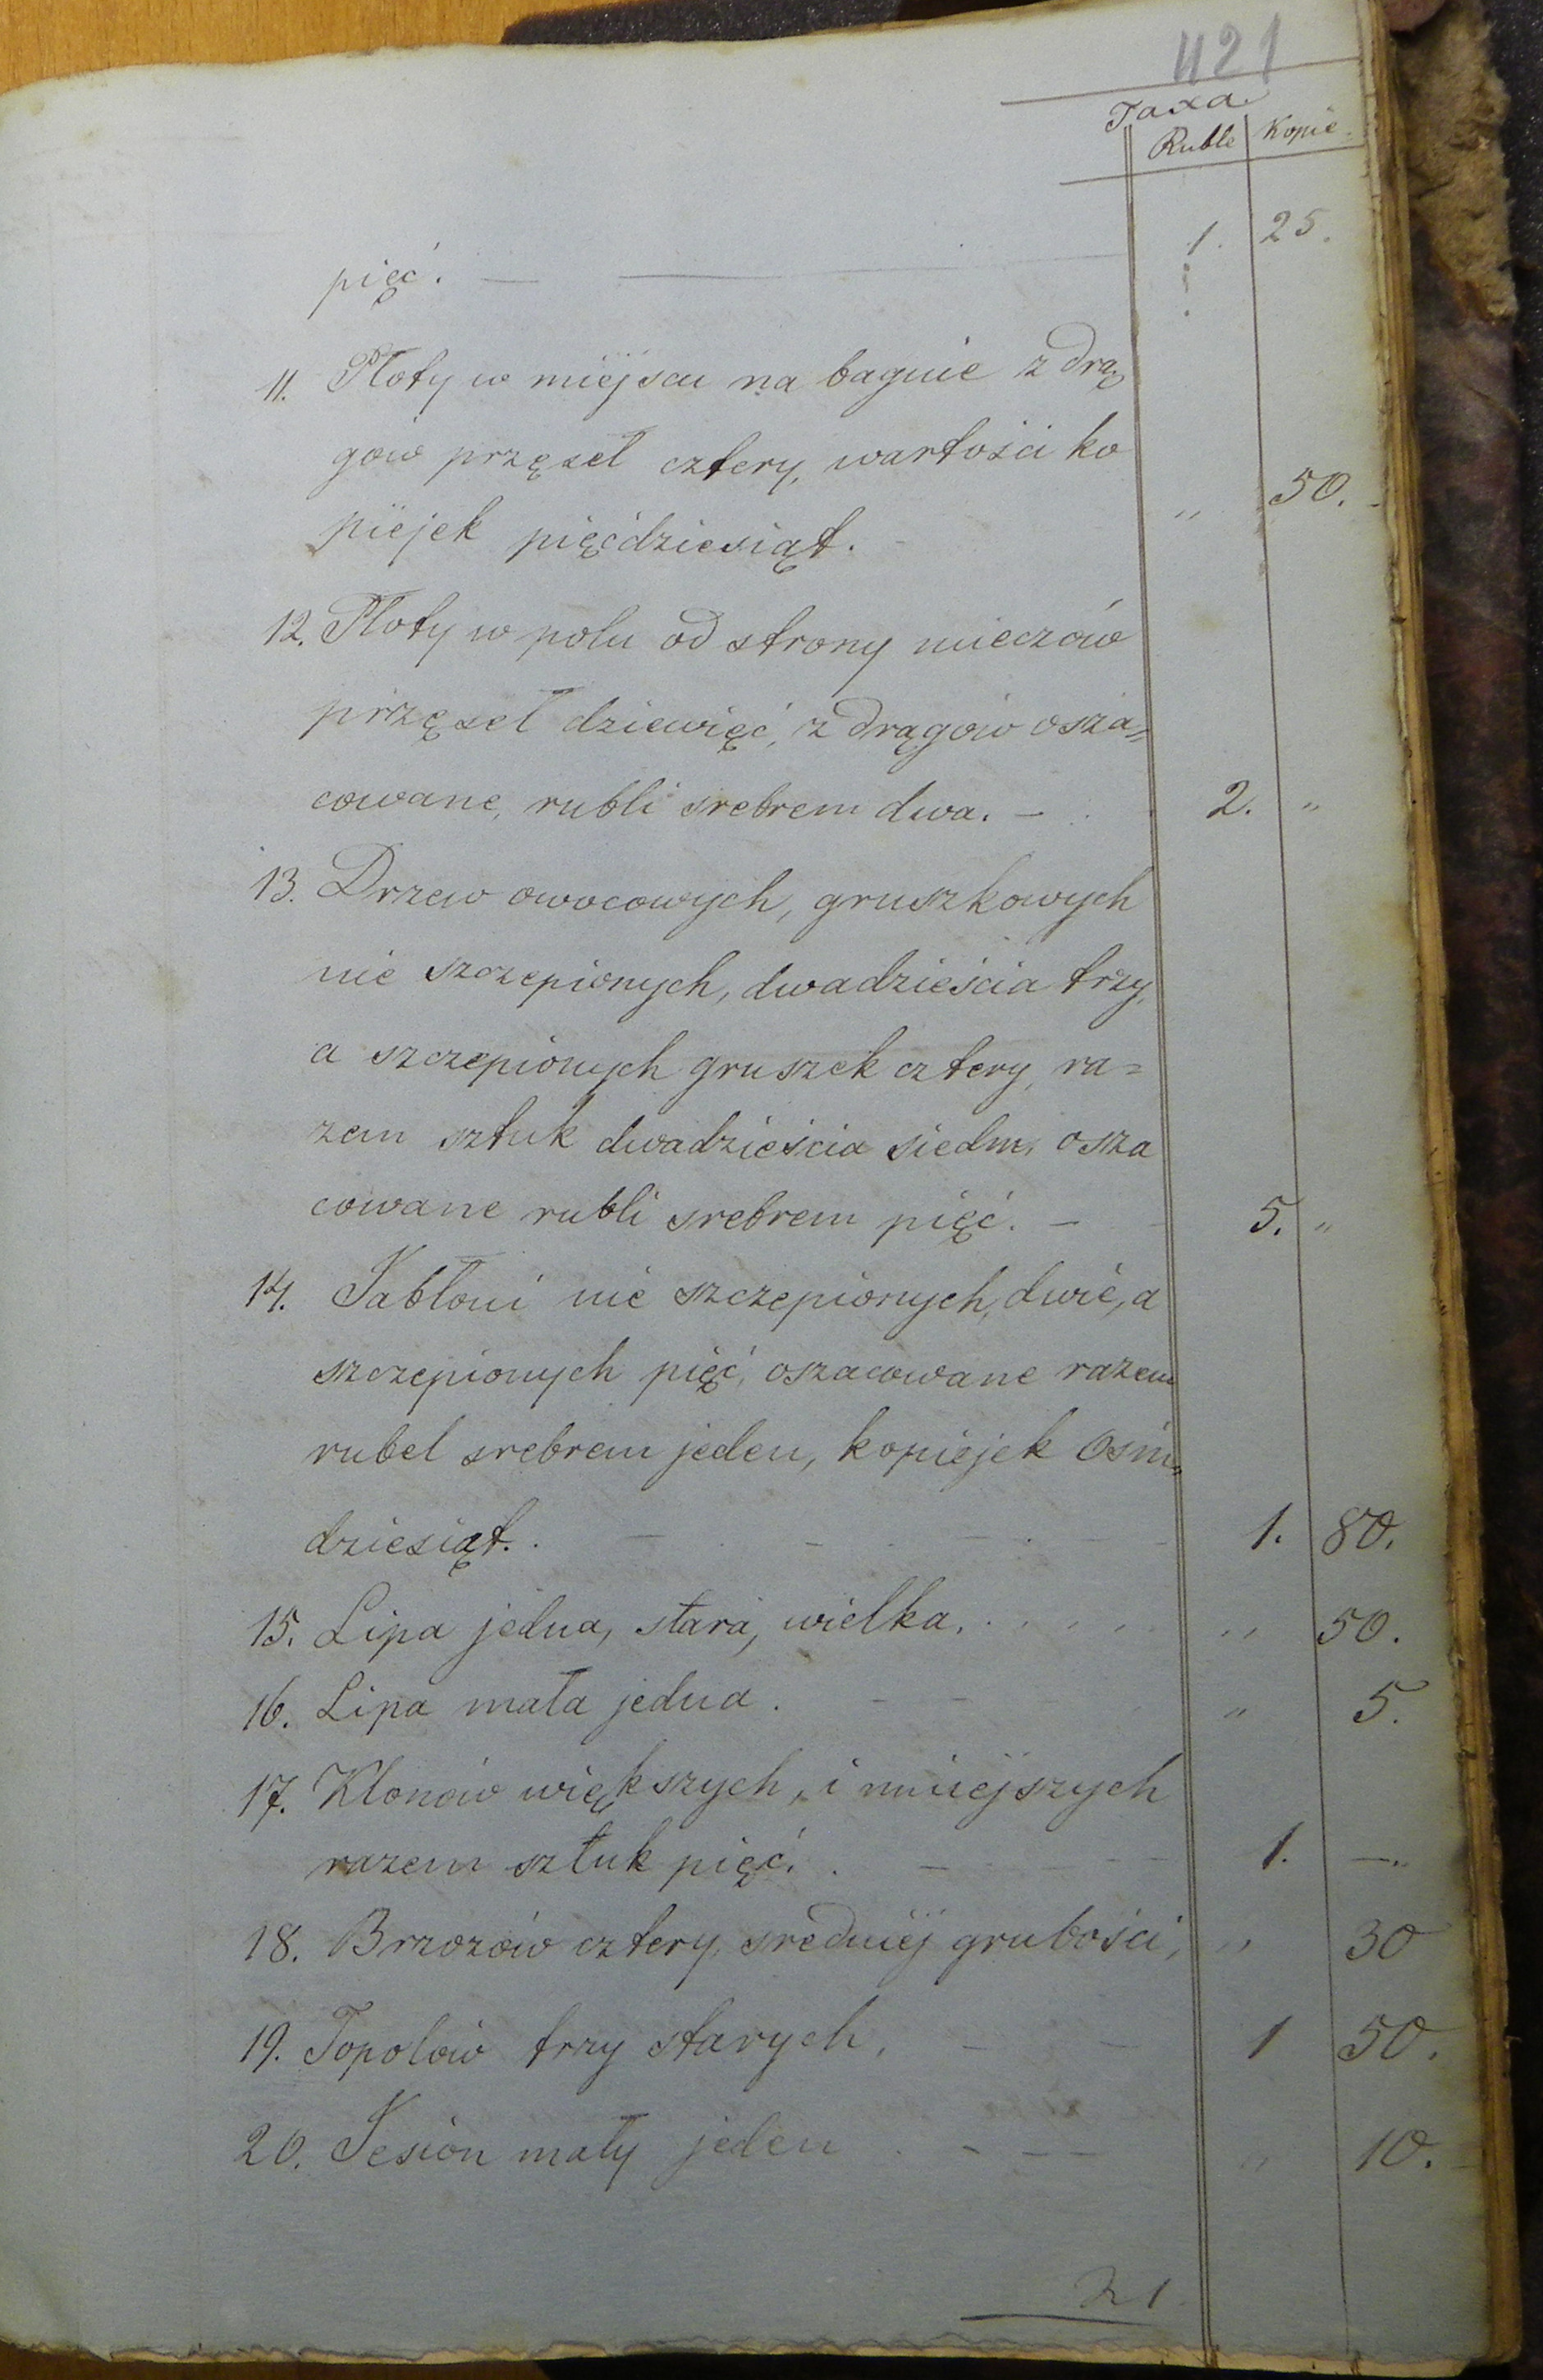 421
Taxa.
Ruble Kopie.
pięć. — 1. 25.
11. Płoty w miejscu na bagnie z drą=
gów przęseł cztery, wartości ko
piejek pięćdziesiąt. - „ 50.
12. Płoty w polu od strony mieczów
przęseł dziewięć, z drągów osza=
cowane, rubli srebrem dwa. - 2. „
13. Drzew owocowych, gruszkowych
nie szczepionych, dwadzieścia trzy,
a szczepionych gruszek cztery, ra=
zem sztuk dwadzieścia siedm, osza
cowane rubli srebrem pięć. - 5. „
14. Jabłoni nie szczepionych, dwie, a
szczepionych pięć, oszacowane razem
rubel srebrem jeden, kopiejek ośm=
dziesiąt. - 1. 80.
15. Lipa jedna, stara, wielka. „ 50.
16. Lipa mała jedna. - - „ 5.
17. Klonów większych, i mniejszych
razem sztuk pięć. - 1. —„
18. Brzozów cztery, sredniej grubości, „ 30
19. Topolów trzy starych, - - 1 50.
20. Jesion mały jeden - - - „ 10.
21.